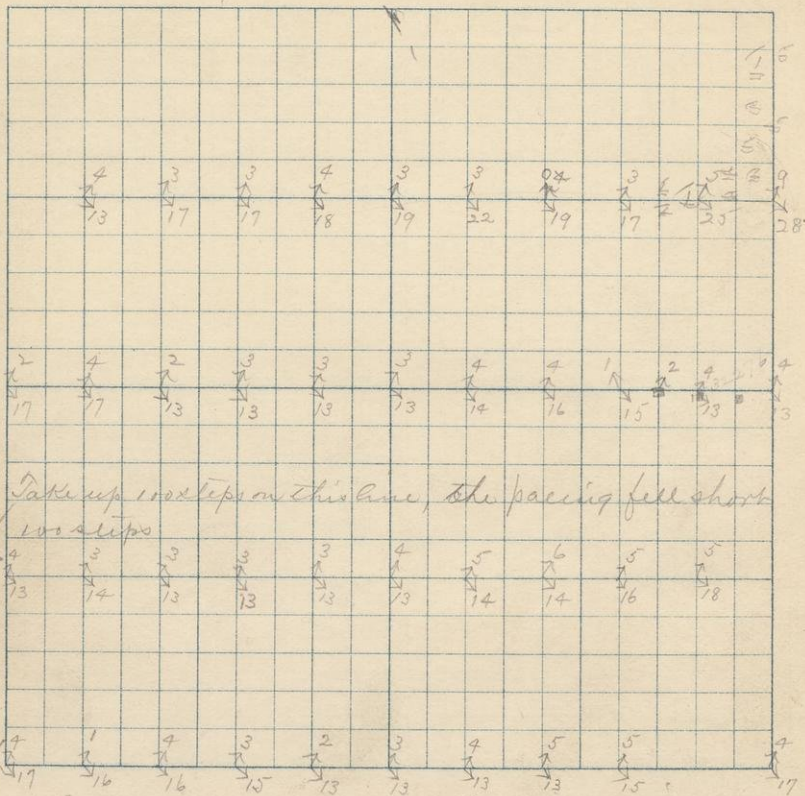 4 3 3 4 3 3 3 5 9
13 17 17 18 19 22 19 17 25 28
2 4 2 3 3 3 4 4 1 2 4 4
17 17 13 13 13 13 14 16 15 13 13
Take up 100 steps on this line, the pacing fell short
100 steps
4 3 3 3 3 4 5 6 5 5
13 14 13 13 13 13 14 14 16 18
4 1 4 3 2 3 4 5 5 4
17 16 16 15 13 13 13 13 15 17